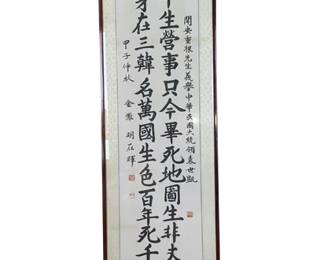 聞安重根先生義擧中華民國大統領袁世凱
生營事只今畢死地圖生非丈
身在三韓名萬國生色百年死千
甲子仲秋